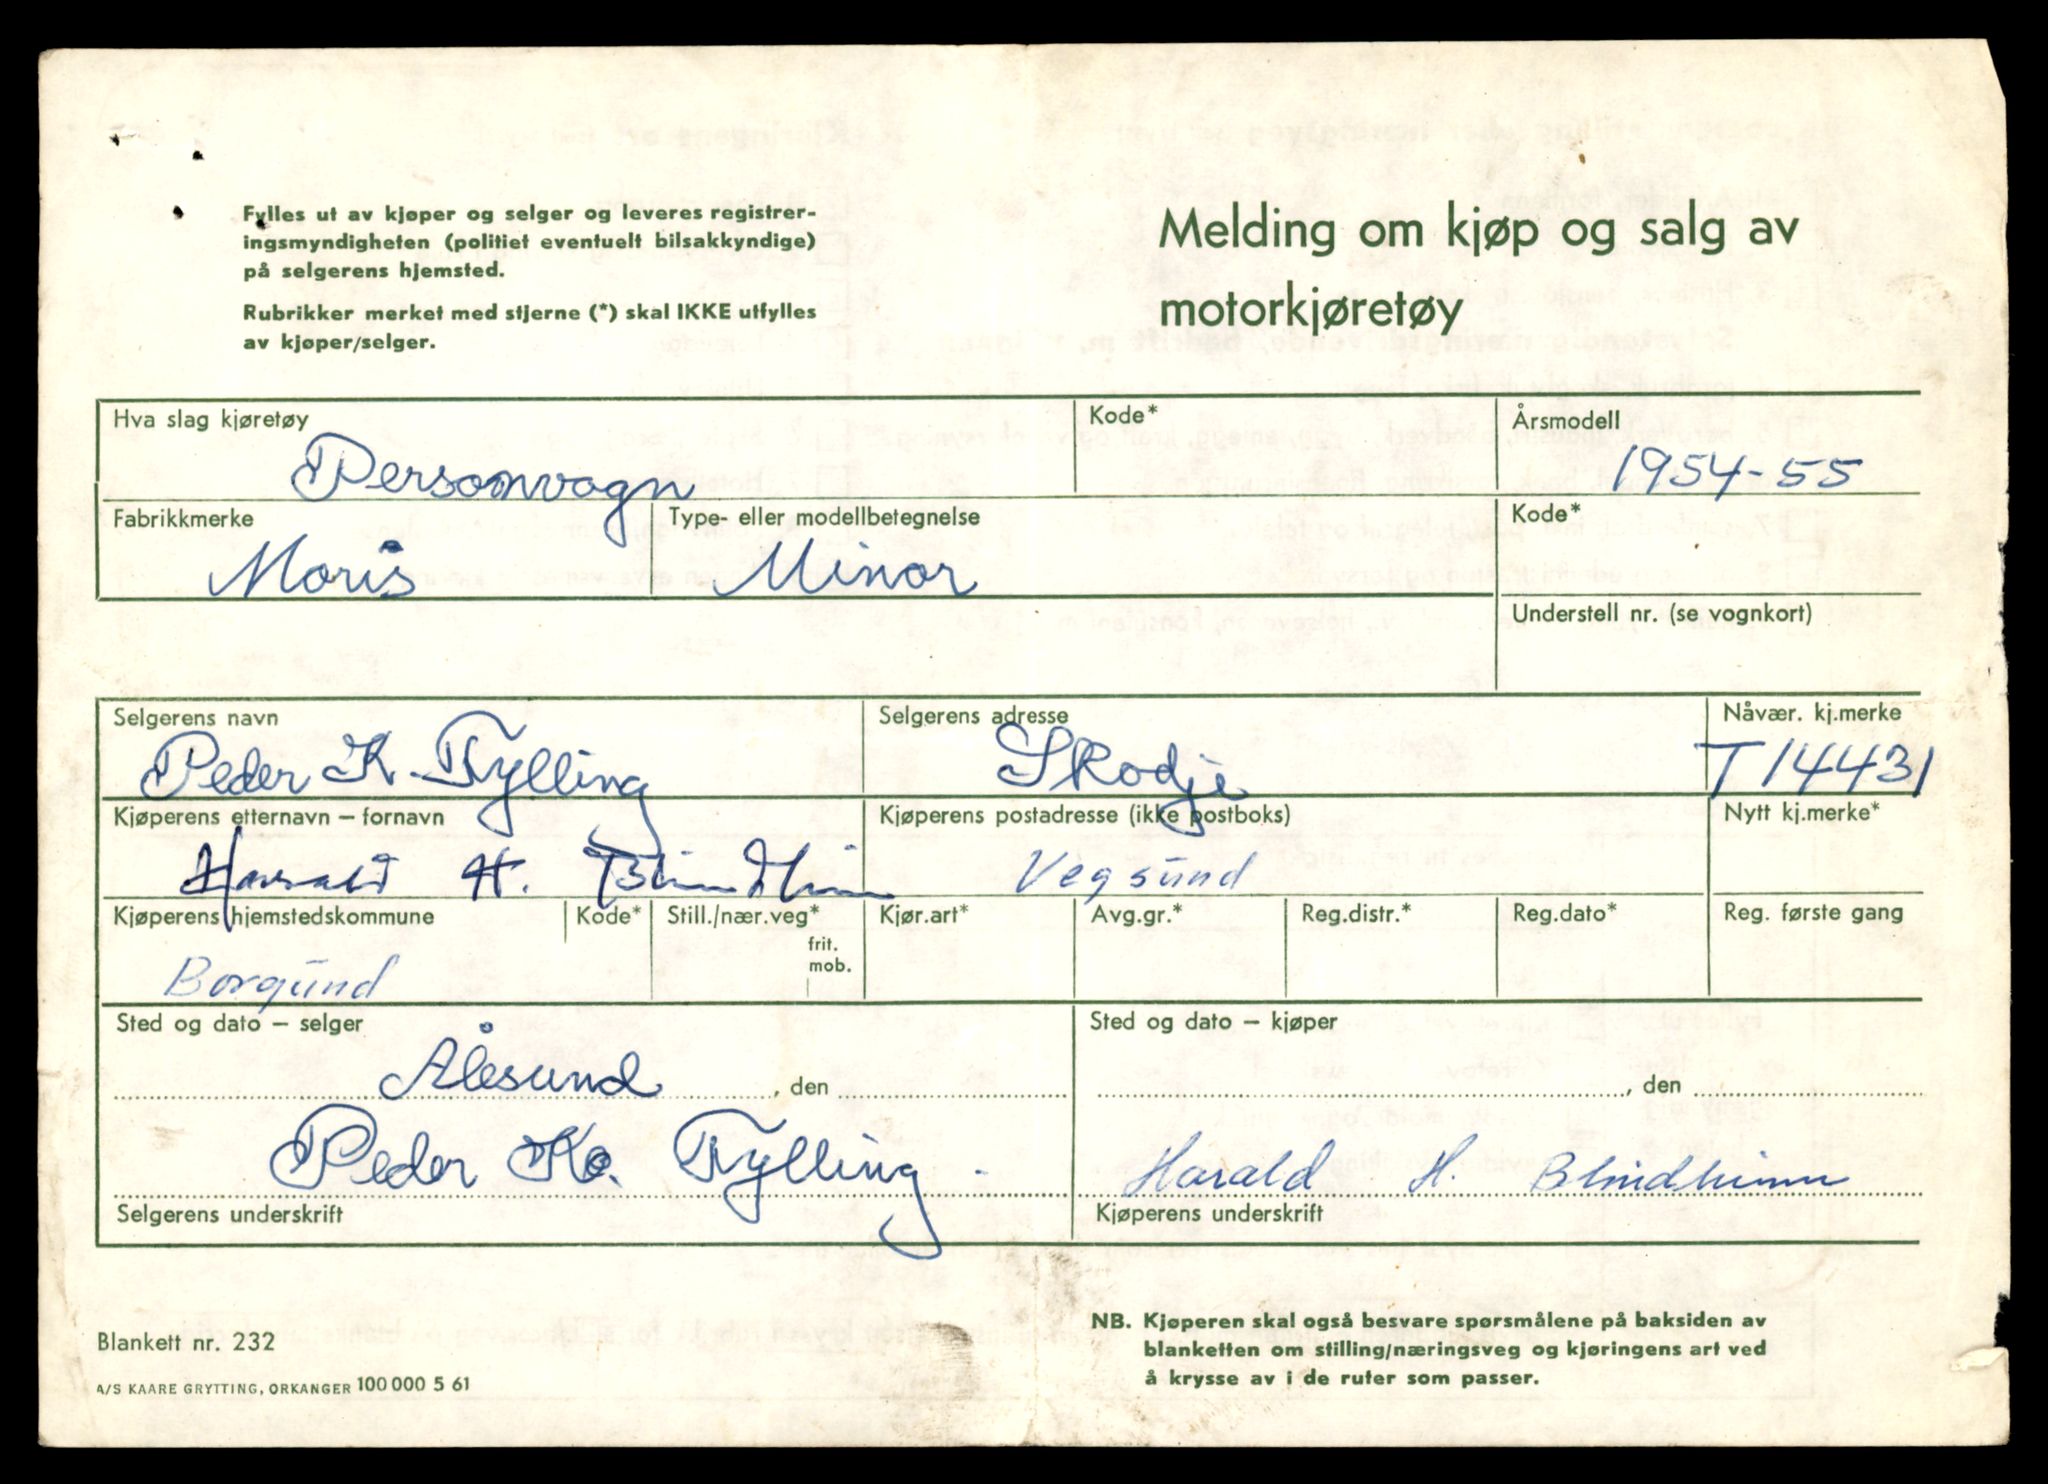 Fylles ut av kjøper og selger og leveres registrer-
ingsmyndigheten (politiet eventuelt bilsakkyndige)
på selgerens hjemsted.
Rubrikker merket med stjerne (*) skal IKKE utfylles
av kjøper/selger.
Melding om kjøp og salg av
motorkjøretøy
Hva slag kjøretøy
Personvogn
Kode*
Årsmodell
1954-55
Fabrikkmerke
Moris
Type- eller modellbetegnelse
Minor
Kode*
Understell nr. (se vognkort)
Selgerens navn
Peder K. Tylling
Selgerens adresse
Skodje
Nåvær. kj.merke
T14431
Kjøperens etternavn – fornavn
Harald H. Blindheim
Kjøperens postadresse (ikke postboks)
Vegsund
Nytt kj.merke*
Kjøperens hjemstedskommune
Borgund
Kode*
Still./nær.veg*
frit.
mob.
Kjør.art*
Avg.gr.*
Reg.distr.*
Reg.dato*
Reg. første gang
Sted og dato – selger
Ålesund, den
Peder K. Tylling
Selgerens underskrift
Sted og dato – kjøper
, den
Harald H. Blindheim
Kjøperens underskrift
Blankett nr. 232
A/S KAARE GRYTTING, ORKANGER 100 000 5 61
NB. Kjøperen skal også besvare spørsmålene på baksiden av
blanketten om stilling/næringsveg og kjøringens art ved
å krysse av i de ruter som passer.